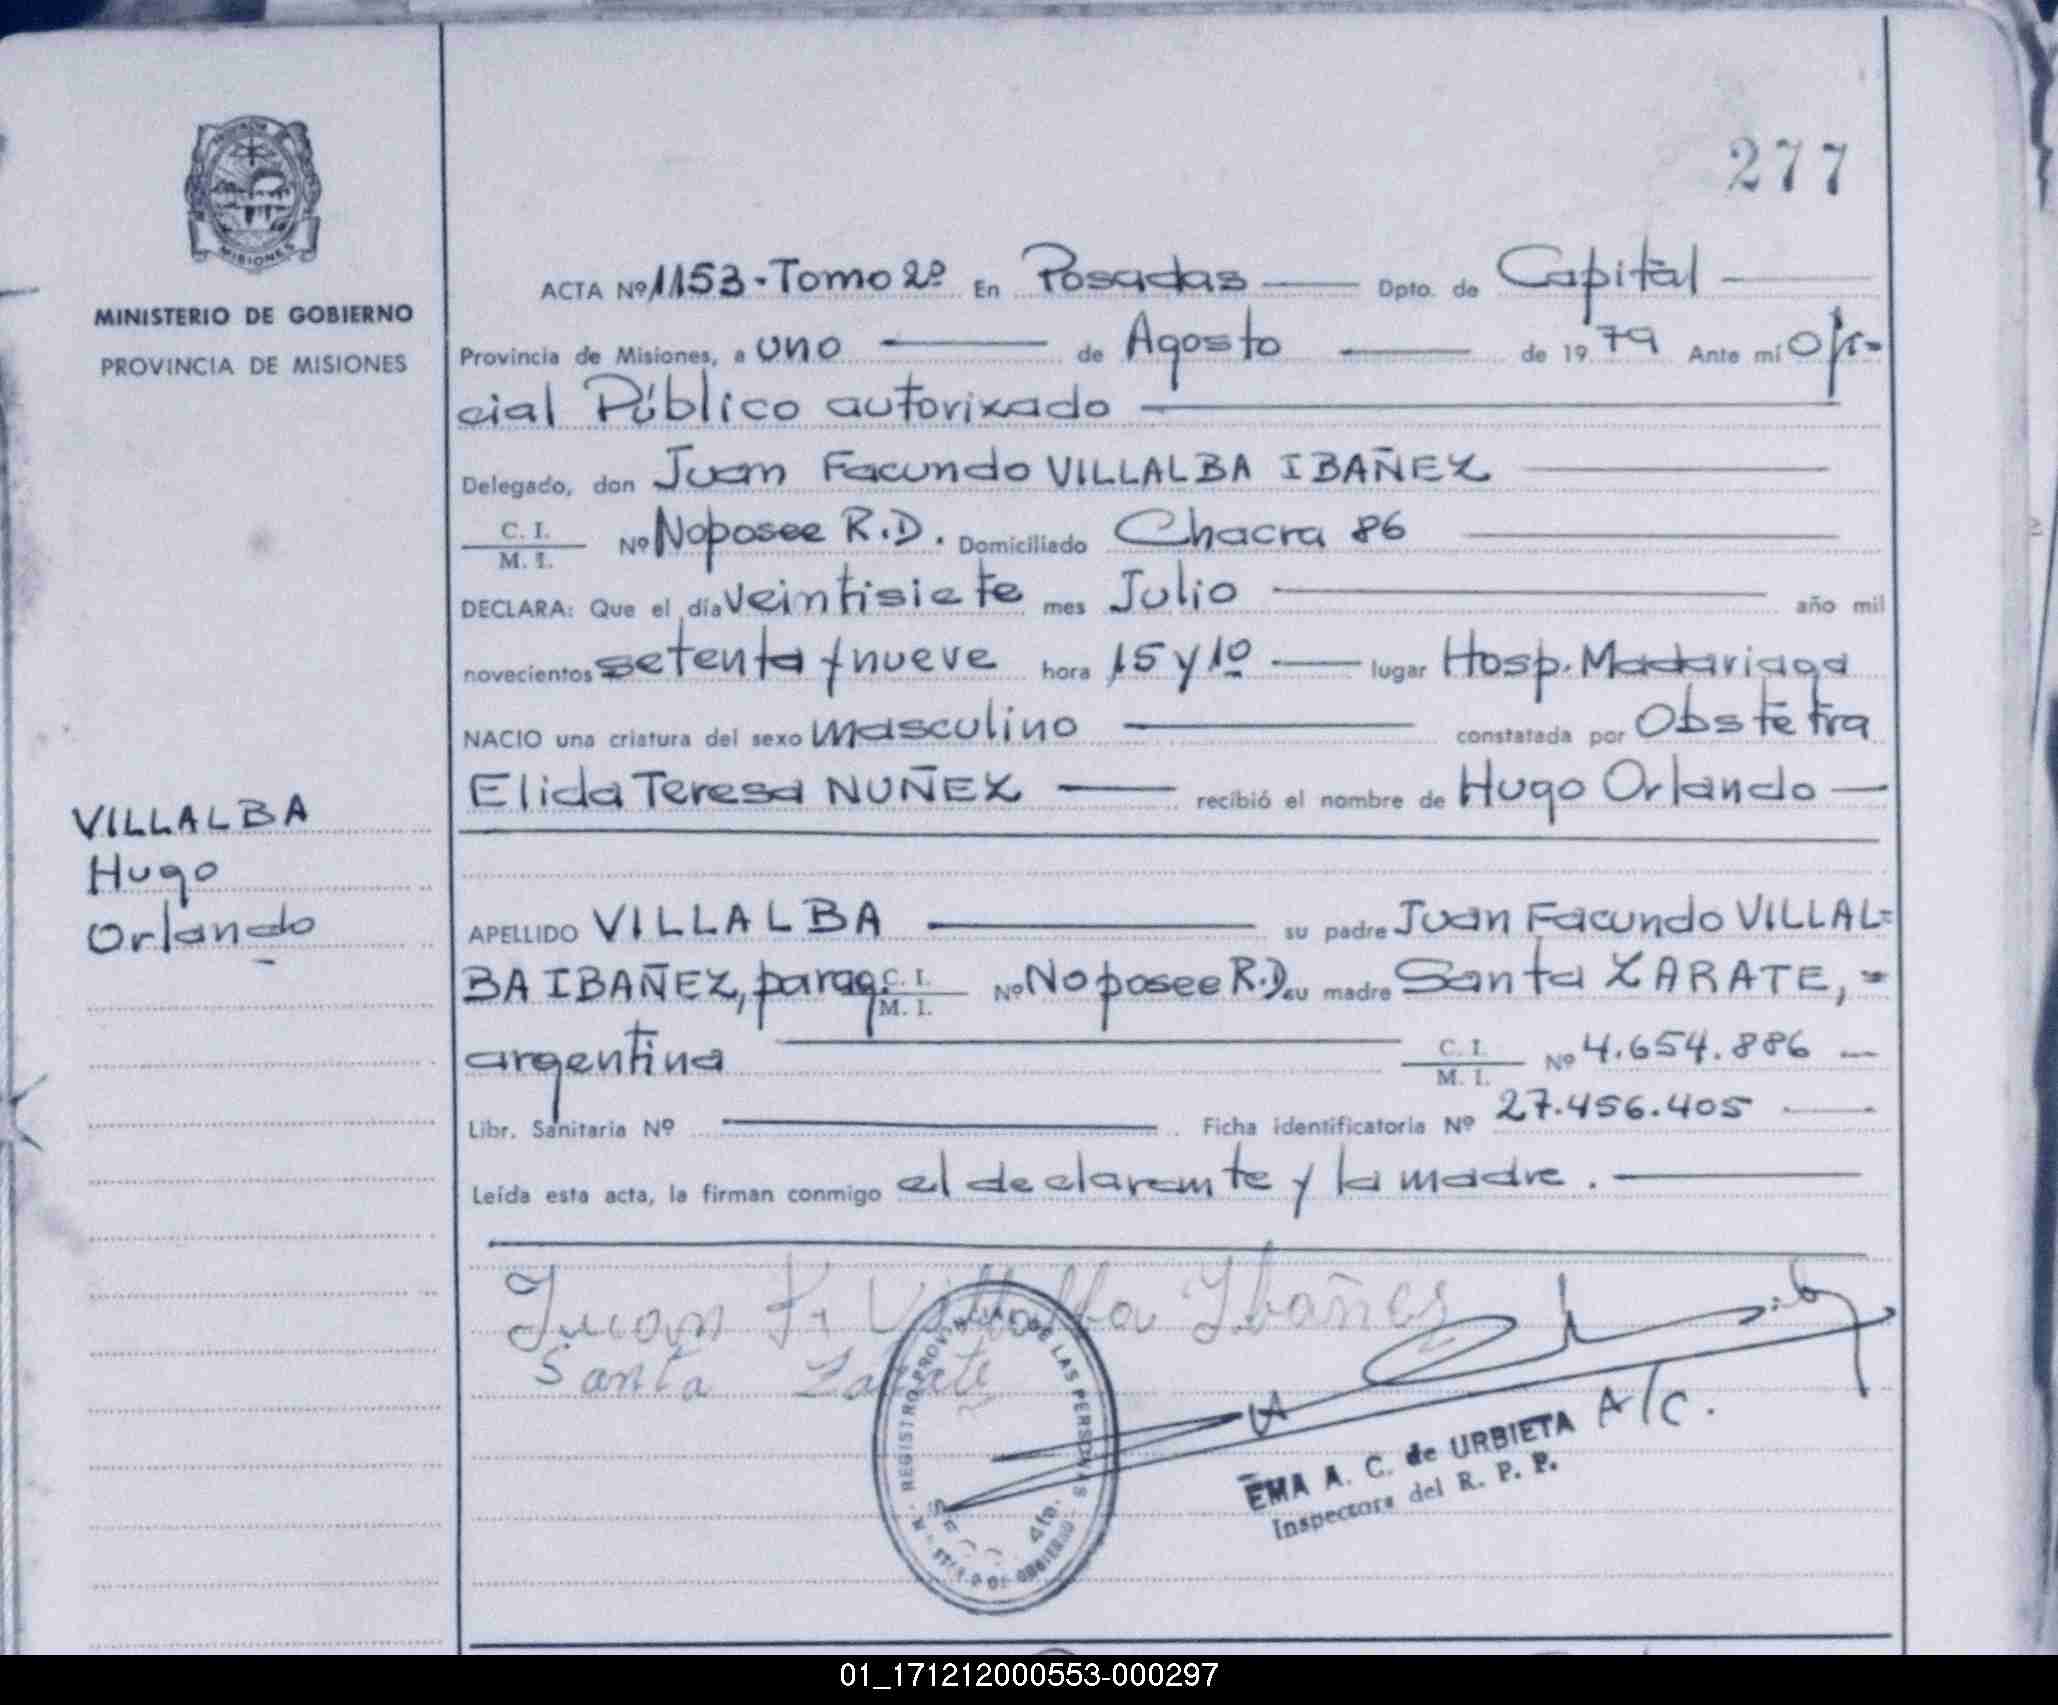 277
PROVINCIA DE
MISIONES
MINISTERIO DE GOBIERNO
PROVINCIA DE MISIONES
VILLALBA
Hugo
Orlando
ACTA Nº 1153-Tomo 2º En Posadas Dpto. de Capital
Provincia de Misiones, a uno de Agosto de 1979 Ante mí Ofi-
cial Público autorizado
Delegado, don Juan Facundo VILLALBA IBAÑEZ
C. I.
M. I. Nº No posee R.D. Domiciliado Chacra 86
DECLARA: Que el día veintisiete mes Julio año mil
novecientos setenta y nueve hora 15 y 10 lugar Hosp. Madariaga
NACIO una criatura del sexo masculino constatada por Obstetra
Elida Teresa NUÑEZ recibió el nombre de Hugo Orlando
APELLIDO VILLALBA su padre Juan Facundo VILLAL=
BA IBAÑEZ, parag. C. I. M. I. Nº No posee R.D. su madre Santa ZARATE, =
argentina C. I. M. I. Nº 4.654.886
Libr. Sanitaria Nº Ficha identificatoria Nº 27.456.405
Leída esta acta, la firman conmigo el declarante y la madre.
Juan F. Villalba Ibañes
Santa Zarate
REGISTRO PROVINCIAL DE LAS PERSONAS
A/C.
EMA A. C. de URBIETA
Inspectora del R. P. P.
01_171212000553-000297